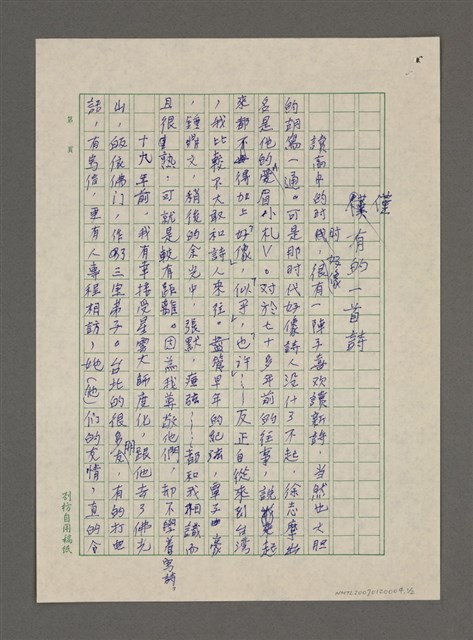 僅有的一首詩
讀高中的時代，很有一陣子喜歡讀新詩，當然也大胆
的胡寫一通。可是那時代好像詩人沒什了不起，徐志摩
名是他的愛眉小札。對於七十多年前的往事，說起
來都不得加上「好像」，「似乎」，「也許」……反正自從來到台灣
，我比較不大敢和詩人來往。儘管早年的紀弦，覃子豪
，鍾鼎文，稍後的余光中，張默，瘂弦……都和我相識而
且很熟，可就是較有距離。因為我尊敬他們，却不學着寫詩。
十九年前，我有幸接受星雲大師度化，跟他去了佛光
山，皈依佛門，作了三寶弟子。台北的很多朋友，有的打電
話，有寫信，更有人專程相訪，她（他）們的友情，真的令
第 頁
自用稿紙